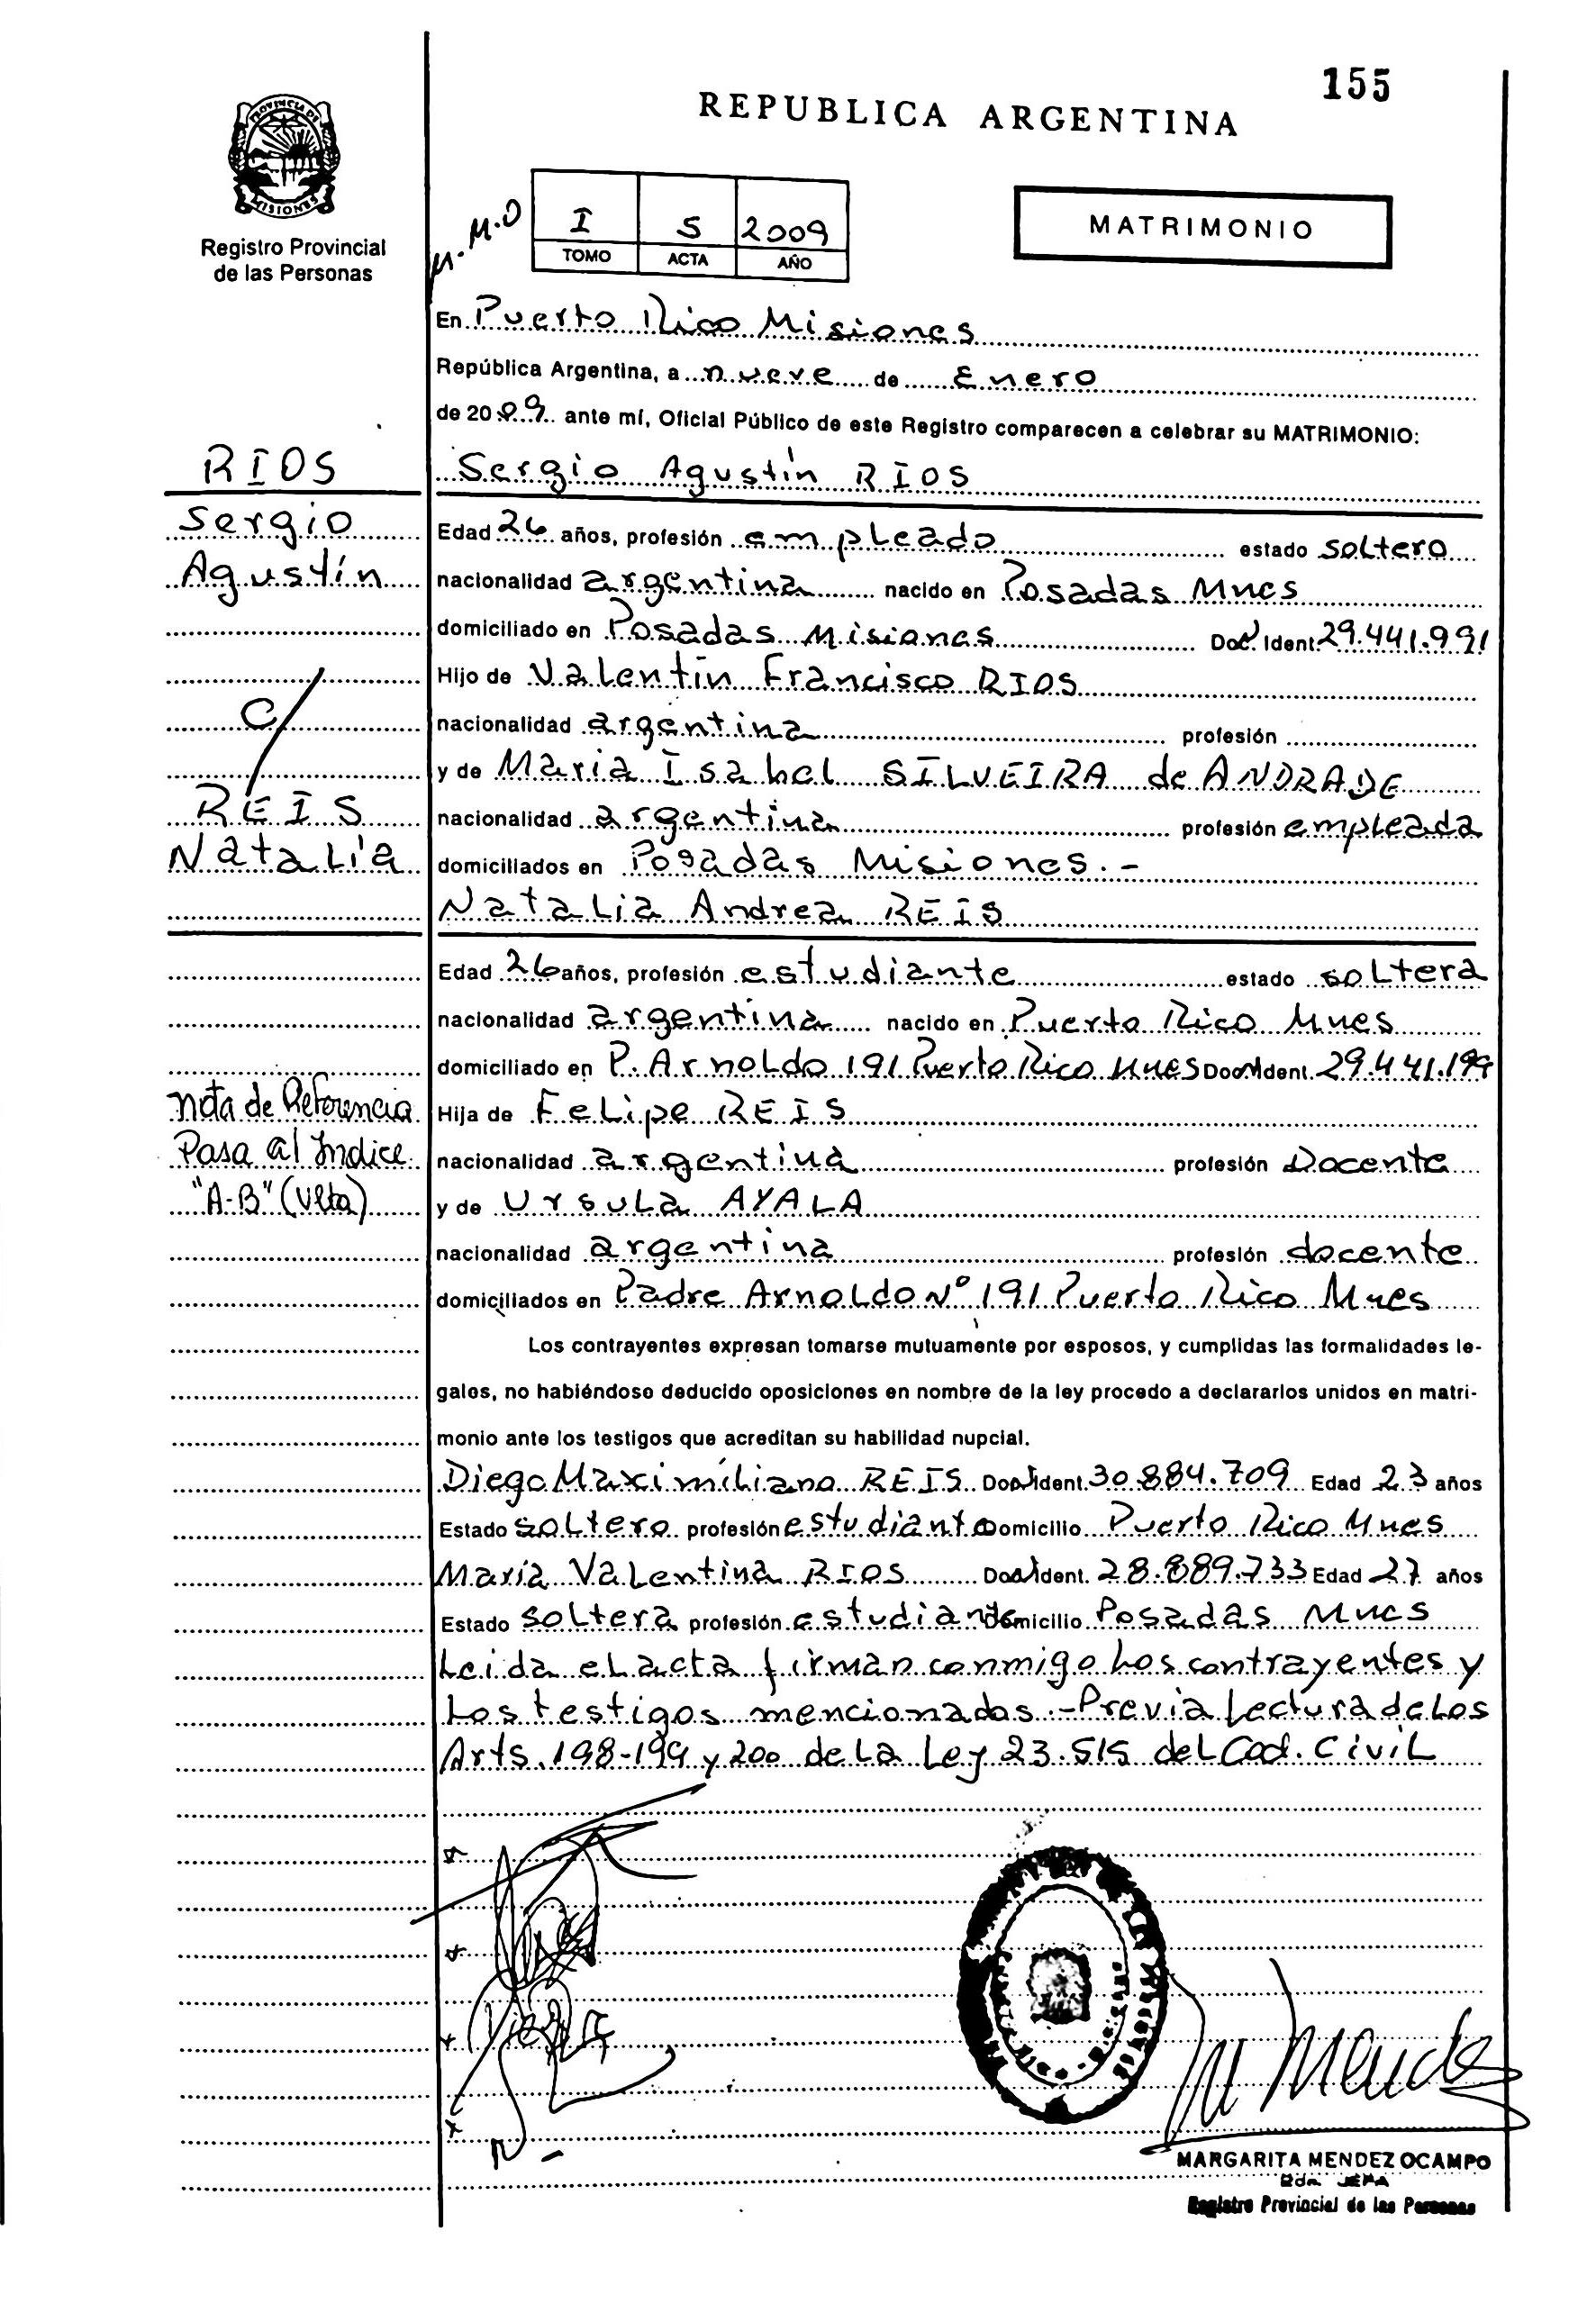 155
REPUBLICA ARGENTINA
PROVINCIA DE
MISIONES
Registro Provincial
de las Personas
M.M.O
I S 2009
TOMO ACTA AÑO
MATRIMONIO
En Puerto Rico Misiones
República Argentina, a nueve de Enero
de 2009 ante mí, Oficial Público de este Registro comparecen a celebrar su MATRIMONIO:
RIOS
Sergio Agustín RIOS
Sergio
Edad 26 años, profesión empleado estado soltero
Agustín
nacionalidad argentina nacido en Posadas Mnes
domiciliado en Posadas Misiones Doc. Ident. 29.441.991
Hijo de Valentín Francisco RIOS
C/
nacionalidad argentina profesión
y de Maria Isabel SILVEIRA de ANDRADE
REIS
nacionalidad argentina profesión empleada
Natalia
domiciliados en Posadas Misiones.-
Natalia Andrea REIS
Edad 26 años, profesión estudiante estado soltera
nacionalidad argentina nacido en Puerto Rico Mnes
domiciliado en P. Arnoldo 191 Puerto Rico Mnes Ident. 29.441.199
nota de Referencia
Hija de Felipe REIS
Pasa al Indice
nacionalidad argentina profesión Docente
"A-B" (Vlta)
y de Ursula AYALA
nacionalidad argentina profesión docente
domiciliados en Padre Arnoldo Nº 191 Puerto Rico Mnes
Los contrayentes expresan tomarse mutuamente por esposos, y cumplidas las formalidades le-
gales, no habiéndose deducido oposiciones en nombre de la ley procedo a declararlos unidos en matri-
monio ante los testigos que acreditan su habilidad nupcial.
Diego Maximiliano REIS Ident. 30.884.709 Edad 23 años
Estado soltero profesión estudiante Domicilio Puerto Rico Mnes
María Valentina RIOS Ident. 28.889.733 Edad 27 años
Estado soltera profesión estudiante Domicilio Posadas Mnes
Leida el acta firman conmigo Los contrayentes y
Los testigos mencionados.-Previa Lectura de Los
Arts. 198-199 y 200 de La Ley 23.515 del Cod. Civil
M Mendez
MARGARITA MENDEZ OCAMPO
2da. JEFA
Registro Provincial de las Personas